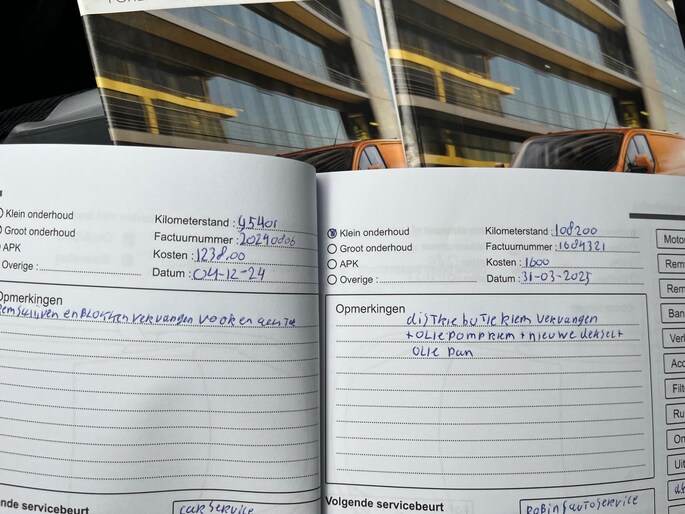 Klein onderhoud
Groot onderhoud
APK
Overige :
Kilometerstand : 95401
Factuurnummer : 20240806
Kosten : 1238,00
Datum : 04-12-24
Opmerkingen
remschijven en Blokken vervangen voor en achter
Volgende servicebeurt
carservice
Klein onderhoud
Groot onderhoud
APK
Overige :
Kilometerstand : 108200
Factuurnummer : 1684321
Kosten : 1600
Datum : 31-03-2025
Opmerkingen
distributieriem vervangen
+ olie pomp riem + nieuwe deksel +
olie pan
Volgende servicebeurt
Robinsautoservice
Moto
Rem
Rem
Ban
Ver
Acc
Filt
Ru
On
Uit